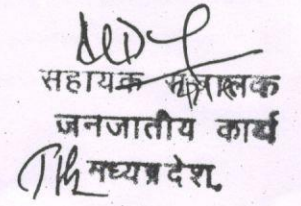 सहायक संचालक
जनजातीय कार्य
मध्यप्रदेश.